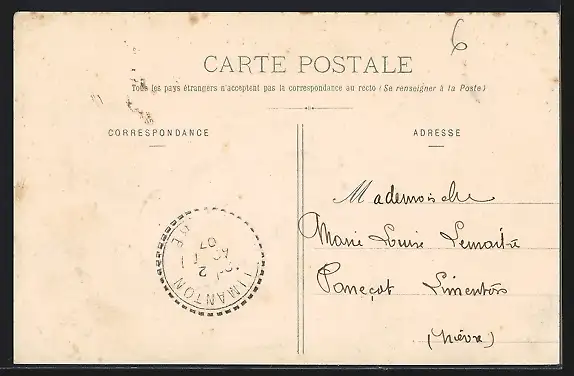 6
CARTE POSTALE
Tous les pays étrangers n'acceptent pas la correspondance au recto (Se renseigner à la Poste)
CORRESPONDANCE
ADRESSE
Mademoiselle
Marie Luise Lemaitre
Paneçot Limentôn
(Nièvre)
LIMANTON
2
07